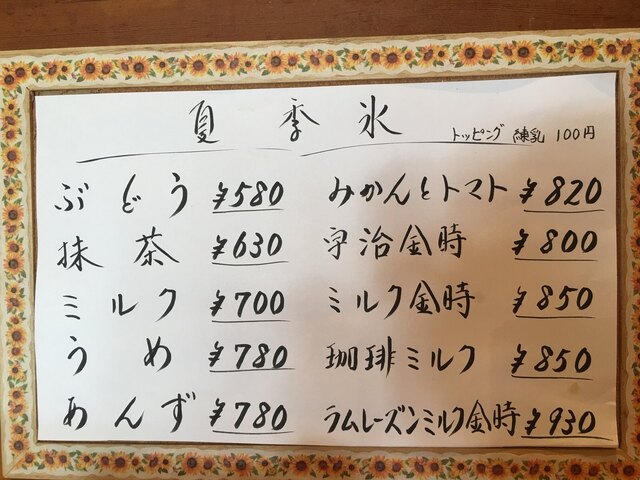 夏季氷
トッピング 練乳 100円
ぶどう ¥580
抹茶 ¥630
ミルク ¥700
うめ ¥780
あんず ¥780
みかんとトマト ¥820
宇治金時 ¥800
ミルク金時 ¥850
珈琲ミルク ¥850
ラムレーズンミルク金時 ¥930